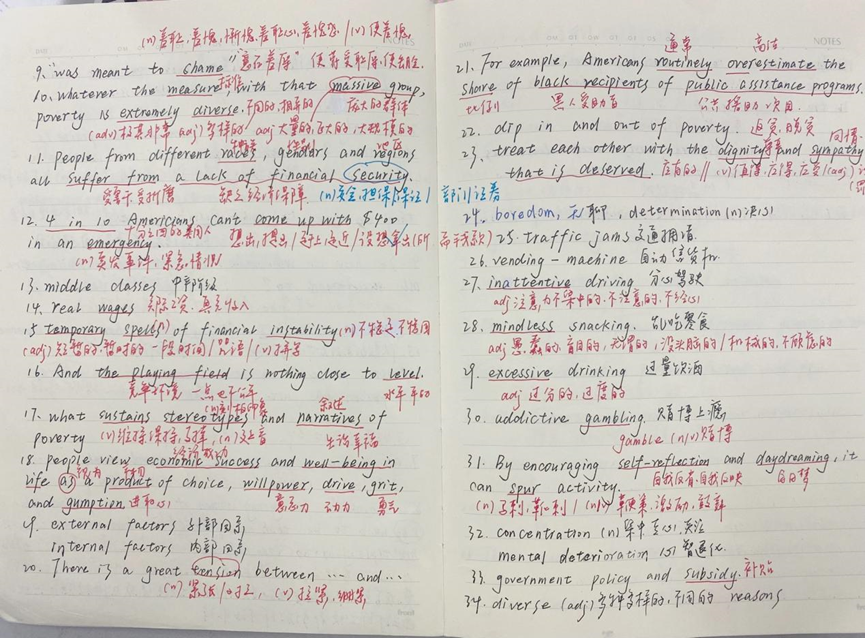 NOTES
(n) 羞耻, 羞愧, 惭愧, 羞耻心, 羞愧感 / (v) 使羞愧,
9. "was meant to shame" "意在羞辱" 使蒙受耻辱, 使出脸
10. whatever the measure 标准 with that massive group,
poverty is extremely diverse. 不同的, 相异的 庞大的群体
(adv) 极其, 非常 adj) 多样的 adj 大量的, 巨大的, 大规模的
11. People from different races, genders and regions
种族 性别 地区
all suffer from a lack of financial security.
受苦于, 受折磨 缺乏经济保障 (n) 安全, 担保, 保证 | 部门, 证券
12. 4 in 10 Americans can't come up with $400
十分之四的美国人 想出, 提出 / 赶上, 逼近 / 设想拿出(所需钱款)
in an emergency.
(n) 突发事件, 紧急情况
13. middle classes 中产阶级
14. real wages 实际工资, 真实收入
15. temporary spells of financial instability (n) 不稳定, 不稳固
(adj) 短暂的, 暂时的 一段时间 / 咒语 / (v) 拼写
16. And the playing field is nothing close to level.
竞争环境 一点也不公平 水平, 平的
17. what sustains stereotypes and narratives of
(n) 刻板印象 叙述
poverty (v) 维持, 保持, 支撑, (n) 延音
经济成功 生活幸福
18. people view economic success and well-being in
视为 产物
life as a product of choice, willpower, drive, grit,
and gumption 进取心 意志力 动力 勇气
19. external factors 外部因素
internal factors 内部因素
20. There is a great tension between … and …
(n) 紧张 / 对立, (v) 拉紧, 绷紧
NOTES
通常 高估
21. For example, Americans routinely overestimate the
share of black recipients of public assistance programs.
比例 黑人受助者 公共援助项目
22. dip in and out of poverty. 返贫, 脱贫
23. treat each other with the dignity 尊严 and sympathy 同情
that is deserved. 应有的 // (v) 值得, 应得, 应受
24. boredom, 无聊, determination (n) 决心
25. traffic jams 交通拥堵
26. vending-machine 自动售货机
27. inattentive driving 分心驾驶
adj 注意力不集中的, 不注意的, 不经心
28. mindless snacking. 乱吃零食
adj 愚蠢的, 盲目的, 无谓的, 没头脑的 / 机械的, 不顾虑的
29. excessive drinking 过量饮酒
adj 过分的, 过度的
30. addictive gambling. 赌博上瘾
gamble (n)(v) 赌博
31. By encouraging self-reflection and daydreaming, it
自我反省, 自我反映 白日梦
can spur activity.
(n) 马刺, 靴刺 / (v) 鞭策, 激励, 鼓舞
32. concentration (n) 集中, 专心, 关注
mental deterioration 心智退化
33. government policy and subsidy. 补贴
34. diverse (adj) 多种多样的, 不同的 reasons